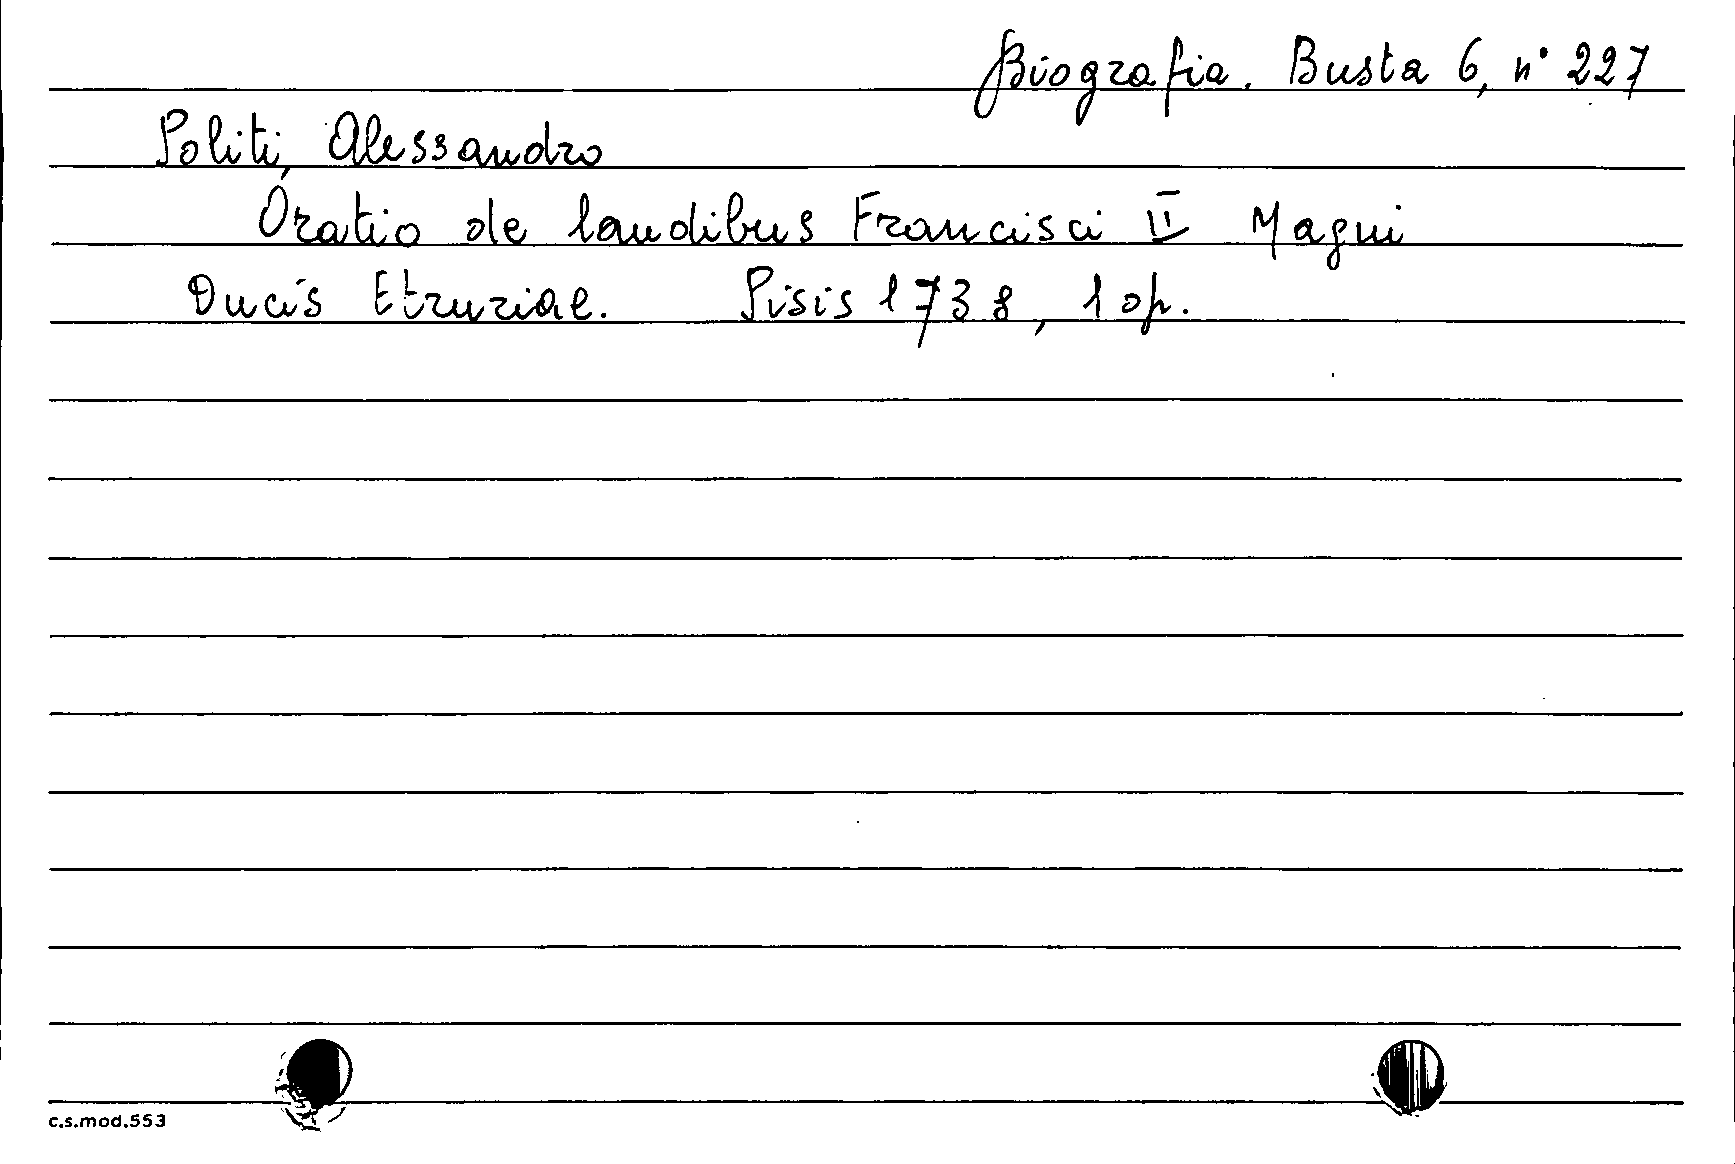 Biografia. Busta 6, n° 227
Politi, Alessandro
Oratio de laudibus Francisci II Magni
Ducis Etruriae. Pisis 1738, 1 op.
c.s.mod.553